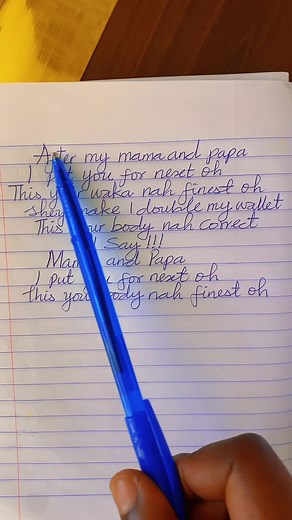 After my mama and papa
I put you for next oh
This your waka nah finest oh
shey make I double my wallet
This your body nah correct
I Say!!!
Mama and Papa
I put you for next oh
this your body nah finest oh